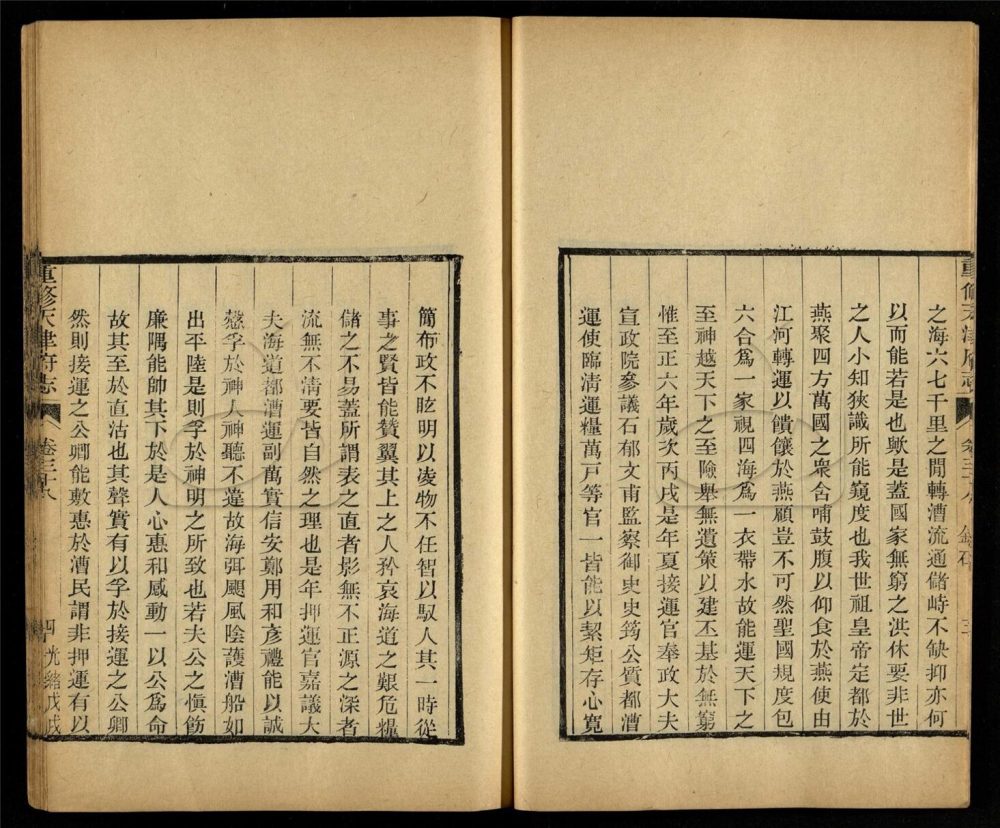 之海六七千里之間轉漕流通儲峙不缺抑亦何
以而能若是也歟是蓋國家無窮之洪休要非世
之人小知狹識所能窺度也我世祖皇帝定都於
燕聚四方萬國之衆含哺鼓腹以仰食於燕使由
江河轉運以饋饟於燕顧豈不可然聖國規度包
六合爲一家視四海爲一衣帶水故能運天下之
至神越天下之至險舉無遺策以建丕基於無窮
惟至正六年歲次丙戌是年夏接運官奉政大夫
宣政院參議石郁文甫監察御史史筠公質都漕
運使臨清運糧萬戸等官一皆能以絜矩存心寬
重修天津府志
卷三十八
簡布政不眩明以凌物不任智以馭人其一時從
事之賢皆能贊翼其上之人矜哀海道之艱危糧
儲之不易蓋所謂表之直者影無不正源之深者
流無不清要皆自然之理也是年押運官嘉議大
夫海道都漕運副萬實信安鄭用和彥禮能以誠
慤孚於神人神聽不違故海弭颶風陰護漕船如
出平陸是則孚於神明之所致也若夫公之愼飭
廉隅能帥其下於是人心惠和感動一以公爲命
故其至於直沽也其聲實有以孚於接運之公卿
然則接運之公卿能敷惠於漕民謂非押運有以
重修天津府志
卷三十八
四
光緒戊戌